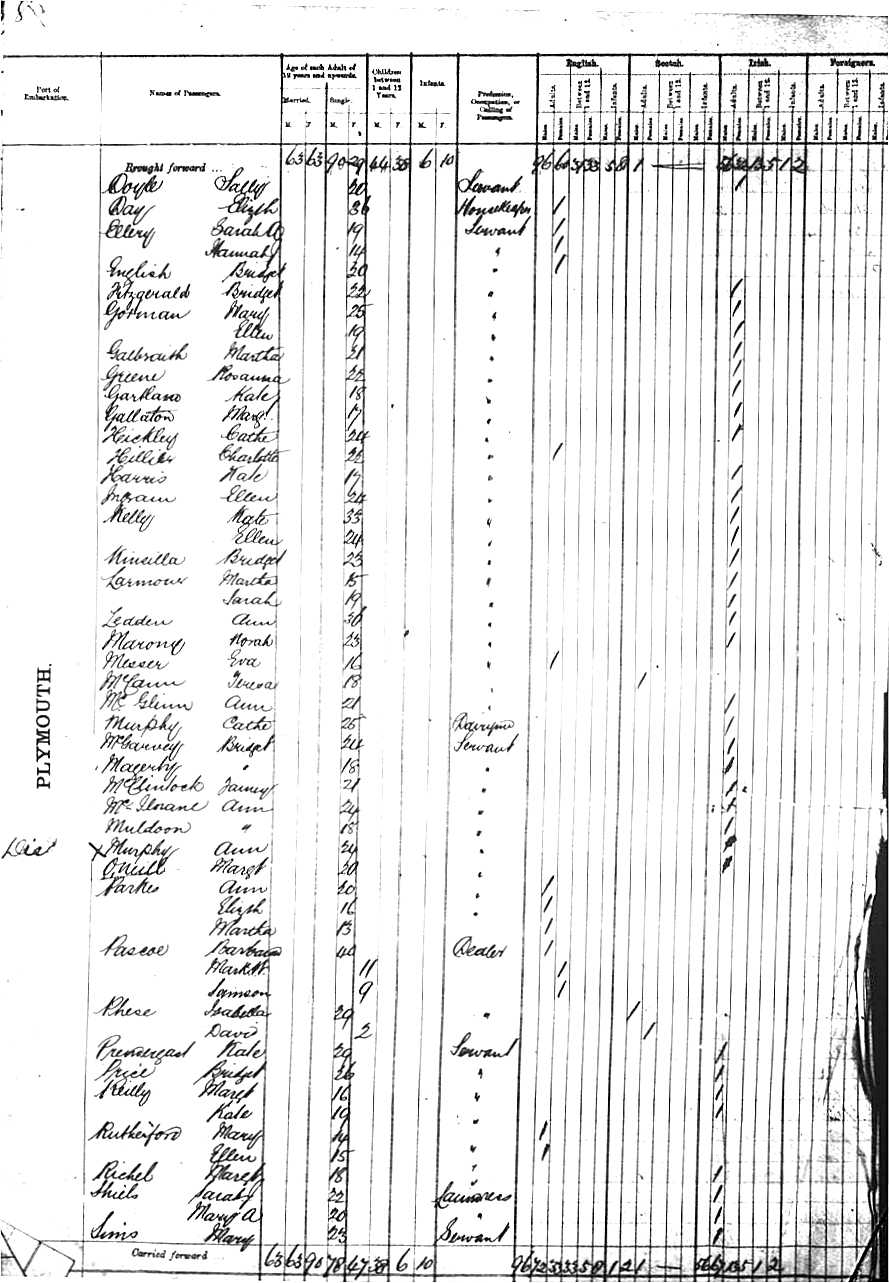 Port of Embarkation.
Names of Passengers.
Age of each Adult of 12 years and upwards.
Married. Single.
M. F. M. F.
Children between 1 and 12 Years.
M. F.
Infants.
M. F.
Profession, Occupation, or Calling of Passengers.
English. Scotch. Irish. Foreigners.
Adults. Between 1 and 12. Infants. Adults. Between 1 and 12. Infants. Adults. Between 1 and 12. Infants. Adults. Between 1 and 12. Infants.
Males Females Males Females Males Females Males Females Males Females Males Females Males Females Males Females Males Females Males Females Males Females Males Females
Brought forward ... 63 63 90 29 44 38 6 10
Doyle Sally 20 Servant 1
Day Elizth 36 Housekeeper 1
Ellery Sarah A 19 Servant 1
Hannah 14 " 1
English Bridget 20 " 1
Fitzgerald Bridget 22 " 1
Gorman Mary 25 " 1
Ellen 19 " 1
Galbraith Martha 21 " 1
Greene Rosanna 22 " 1
Gartland Kate 18 " 1
Gallaton Margt 17 " 1
Hickley Cathe 24 " 1
Hillier Charlotte 22 " 1
Harris Kate 17 " 1
Ingram Ellen 24 " 1
Kelly Kate 33 " 1
Ellen 24 " 1
Kinsilla Bridget 23 " 1
Larmour Martha 15 " 1
Sarah 19 " 1
Ledden Ann 36 " 1
Marony Norah 23 " 1
Messer Eva 16 " 1
McCann Teresa 18 " 1
McGlinn Ann 21 " 1
Murphy Cathe 25 1
McGarvey Bridget 24 Servant 1
Magerty " 18 " 1
McClintock Fanny 21 " 1
Ann 24 " 1
Muldoon " 18 " 1
X Murphy Ann 24 " 1
O'Neill Margt 20 " 1
Parkes Ann 20 " 1
Elizth 16 " 1
Martha 13 " 1
Pascoe Barbara 40 Dealer 1
Mark W. 11 1
Samson 9 1
Rhese Isabella 29 " 1
David 2 1
Prendergast Kate 29 Servant 1
Price Bridget 26 " 1
Reilly Margt 16 " 1
Kate 19 " 1
Rutherford Mary 14 " 1
Ellen 15 " 1
Richel Margt 18 " 1
Shiels Sarah 22 Laundress 1
Mary A 20 " 1
Sims Mary 23 Servant 1
Carried forward 63 63 90 78 47 38 6 10
PLYMOUTH.